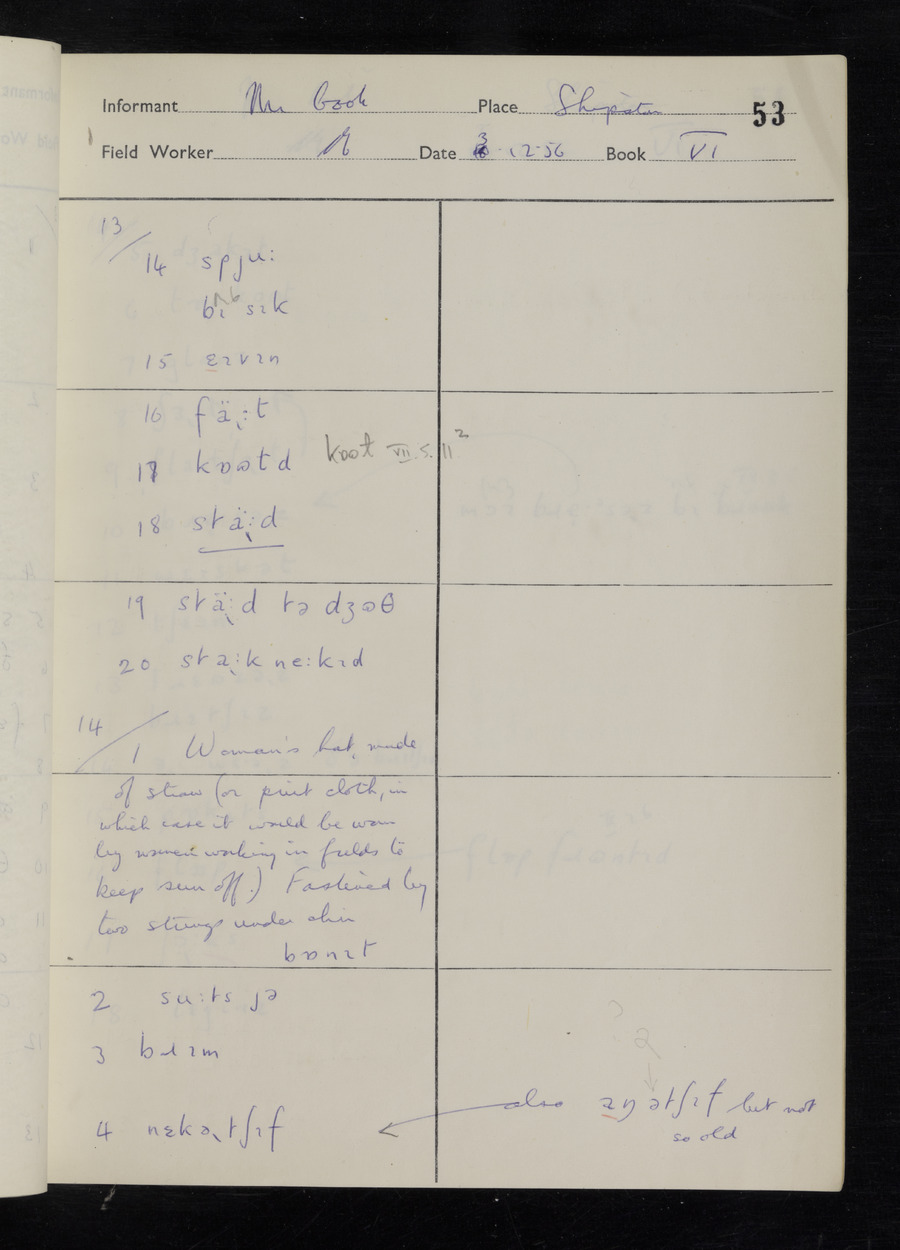 Informant Mr Cook Place Shipston 53
Field Worker Date 3·12·56 Book VI
13/
14 spju:
bɪ sɪk
15 ɛɪvɪn
16 fä:t
17 kɒɷtd kɒɷt VII.5.11²
18 stä:d
19 stä:d tə dʒɷθ
20 sta:k ne:kɪd
14/
1 Woman's hat, made
of straw (or print cloth, in
which case it would be worn
by women working in fields to
keep sun off.) Fastened by
two strings under chin
bɒnɪt
2 su:ts jə
3 bɹɪm
4 nɛkətʃɪf also aŋətʃɪf but not
so old